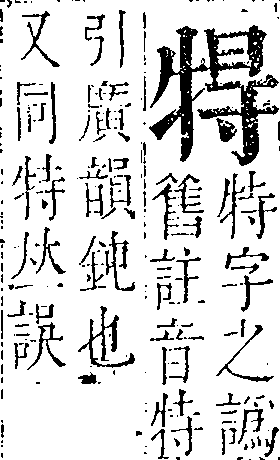 特字之譌
舊註音特
引廣韻鈍也
又同特𠀤誤